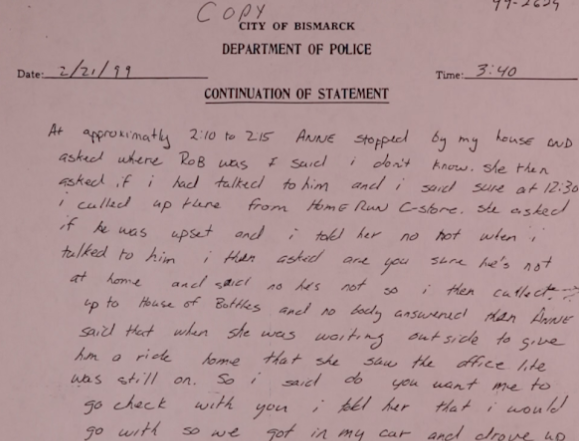 COPY
99-2629
CITY OF BISMARCK
DEPARTMENT OF POLICE
Date: 2/21/99 Time: 3:40
CONTINUATION OF STATEMENT
At approximatly 2:10 to 2:15 ANNE stopped by my house AND
asked where ROB was & said i don't know. she then
asked if i had talked to him and i said sure at 12:30
i called up there from HOME RUN C-store. she asked
if he was upset and i told her no not when i
talked to him i then asked are you sure he's not
at home and said no he's not so i then called
up to House of Bottles and no body answered then ANNE
said that when she was waiting out side to give
him a ride home that she saw the office lite
was still on. So i said do you want me to
go check with you i told her that i would
go with so we got in my car and drove up